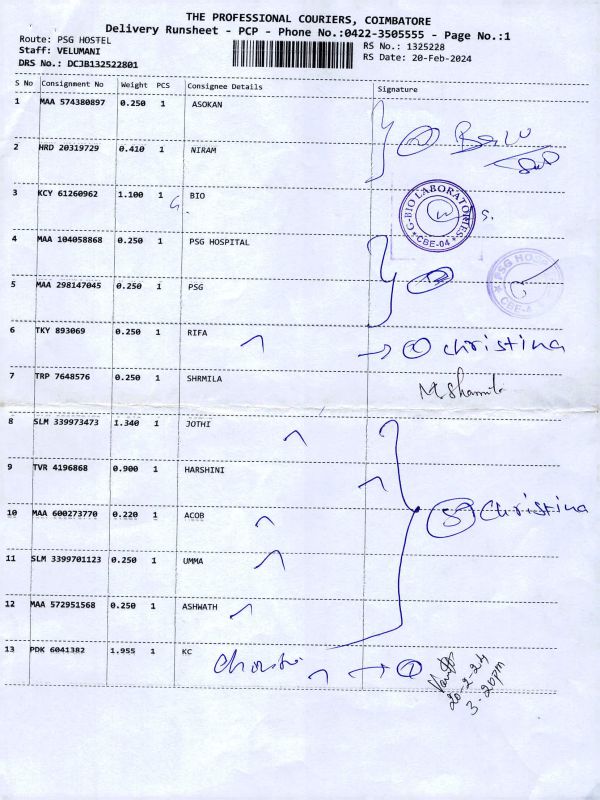 THE PROFESSIONAL COURIERS, COIMBATORE
Delivery Runsheet - PCP - Phone No.:0422-3505555 - Page No.:1
Route: PSG HOSTEL
RS No.: 1325228
Staff: VELUMANI
RS Date: 20-Feb-2024
DRS No.: DCJB132522801
S No Consignment No Weight PCS Consignee Details Signature
1 MAA 574380897 0.250 1 ASOKAN
2 HRD 20319729 0.410 1 NIRAM
3 KCY 61260962 1.100 1 BIO
G-BIO LABORATORIES
CBE-04
S.
4 MAA 104058868 0.250 1 PSG HOSPITAL
PSG HOSTEL
CBE-4
5 MAA 298147045 0.250 1 PSG
6 TKY 893069 0.250 1 RIFA
christina
7 TRP 7648576 0.250 1 SHRMILA
M. Sharmila
8 SLM 339973473 1.340 1 JOTHI
9 TVR 4196868 0.900 1 HARSHINI
10 MAA 600273770 0.220 1 ACOB
5 Christina
11 SLM 3399701123 0.250 1 UMMA
12 MAA 572951568 0.250 1 ASHWATH
13 PDK 6041382 1.955 1 KC
1
20-2-24
3.20pm